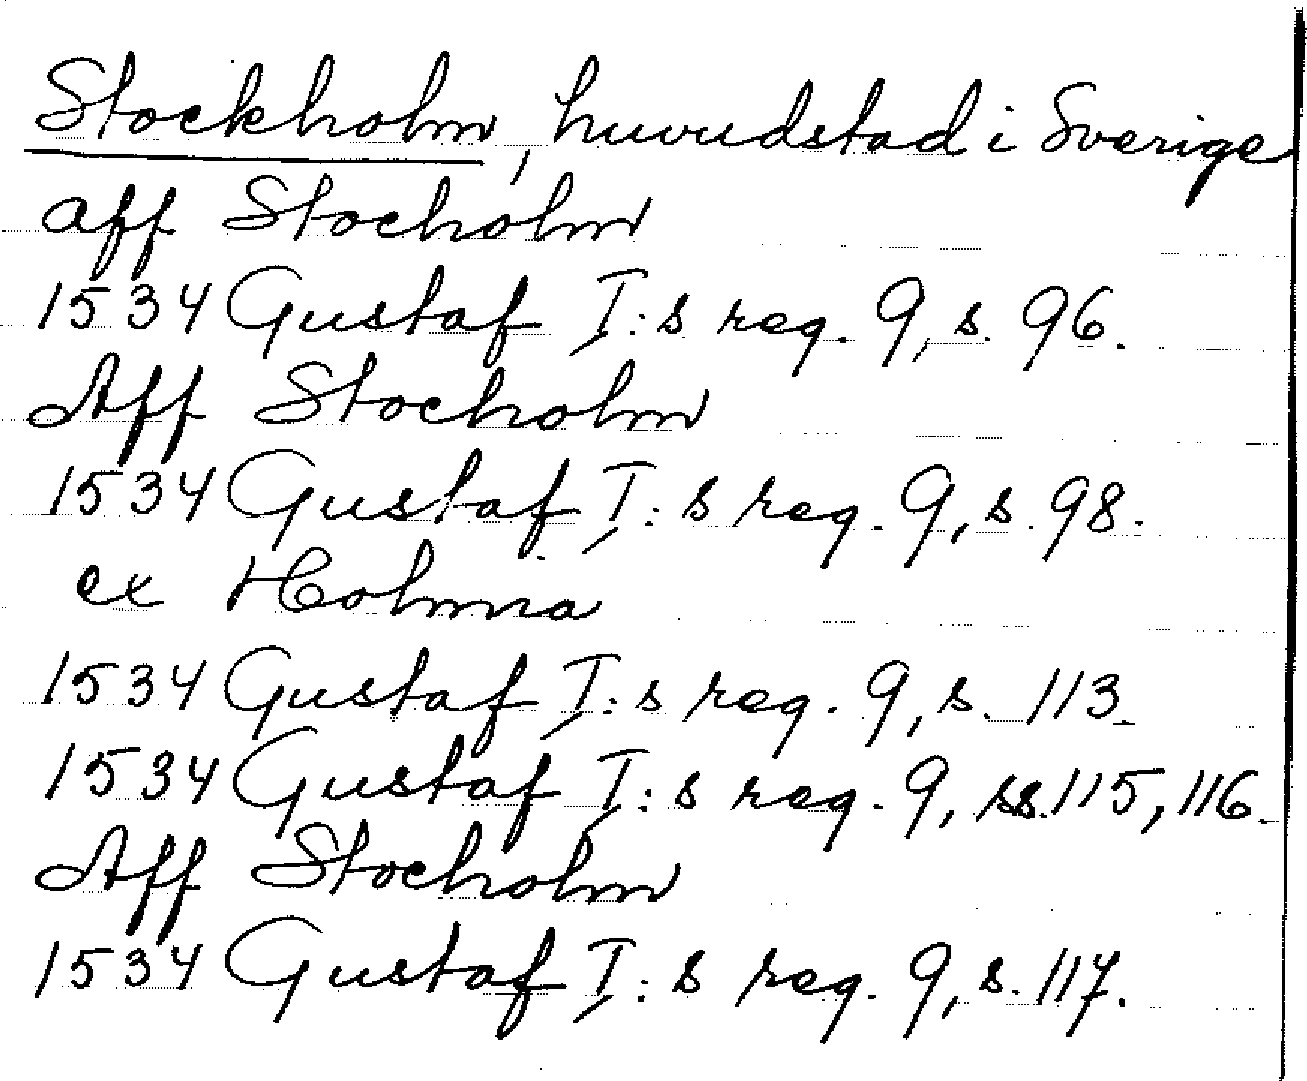 Stockholm, huvudstad i Sverige
aff Stocholm
1534 Gustaf I:s reg. 9, s. 96.
Aff Stocholm
1534 Gustaf I:s reg. 9, s. 98.
ex Holmia
1534 Gustaf I:s reg. 9, s. 113.
1534 Gustaf I:s reg. 9, ss. 115, 116.
Aff Stocholm
1534 Gustaf I:s reg. 9, s. 117.